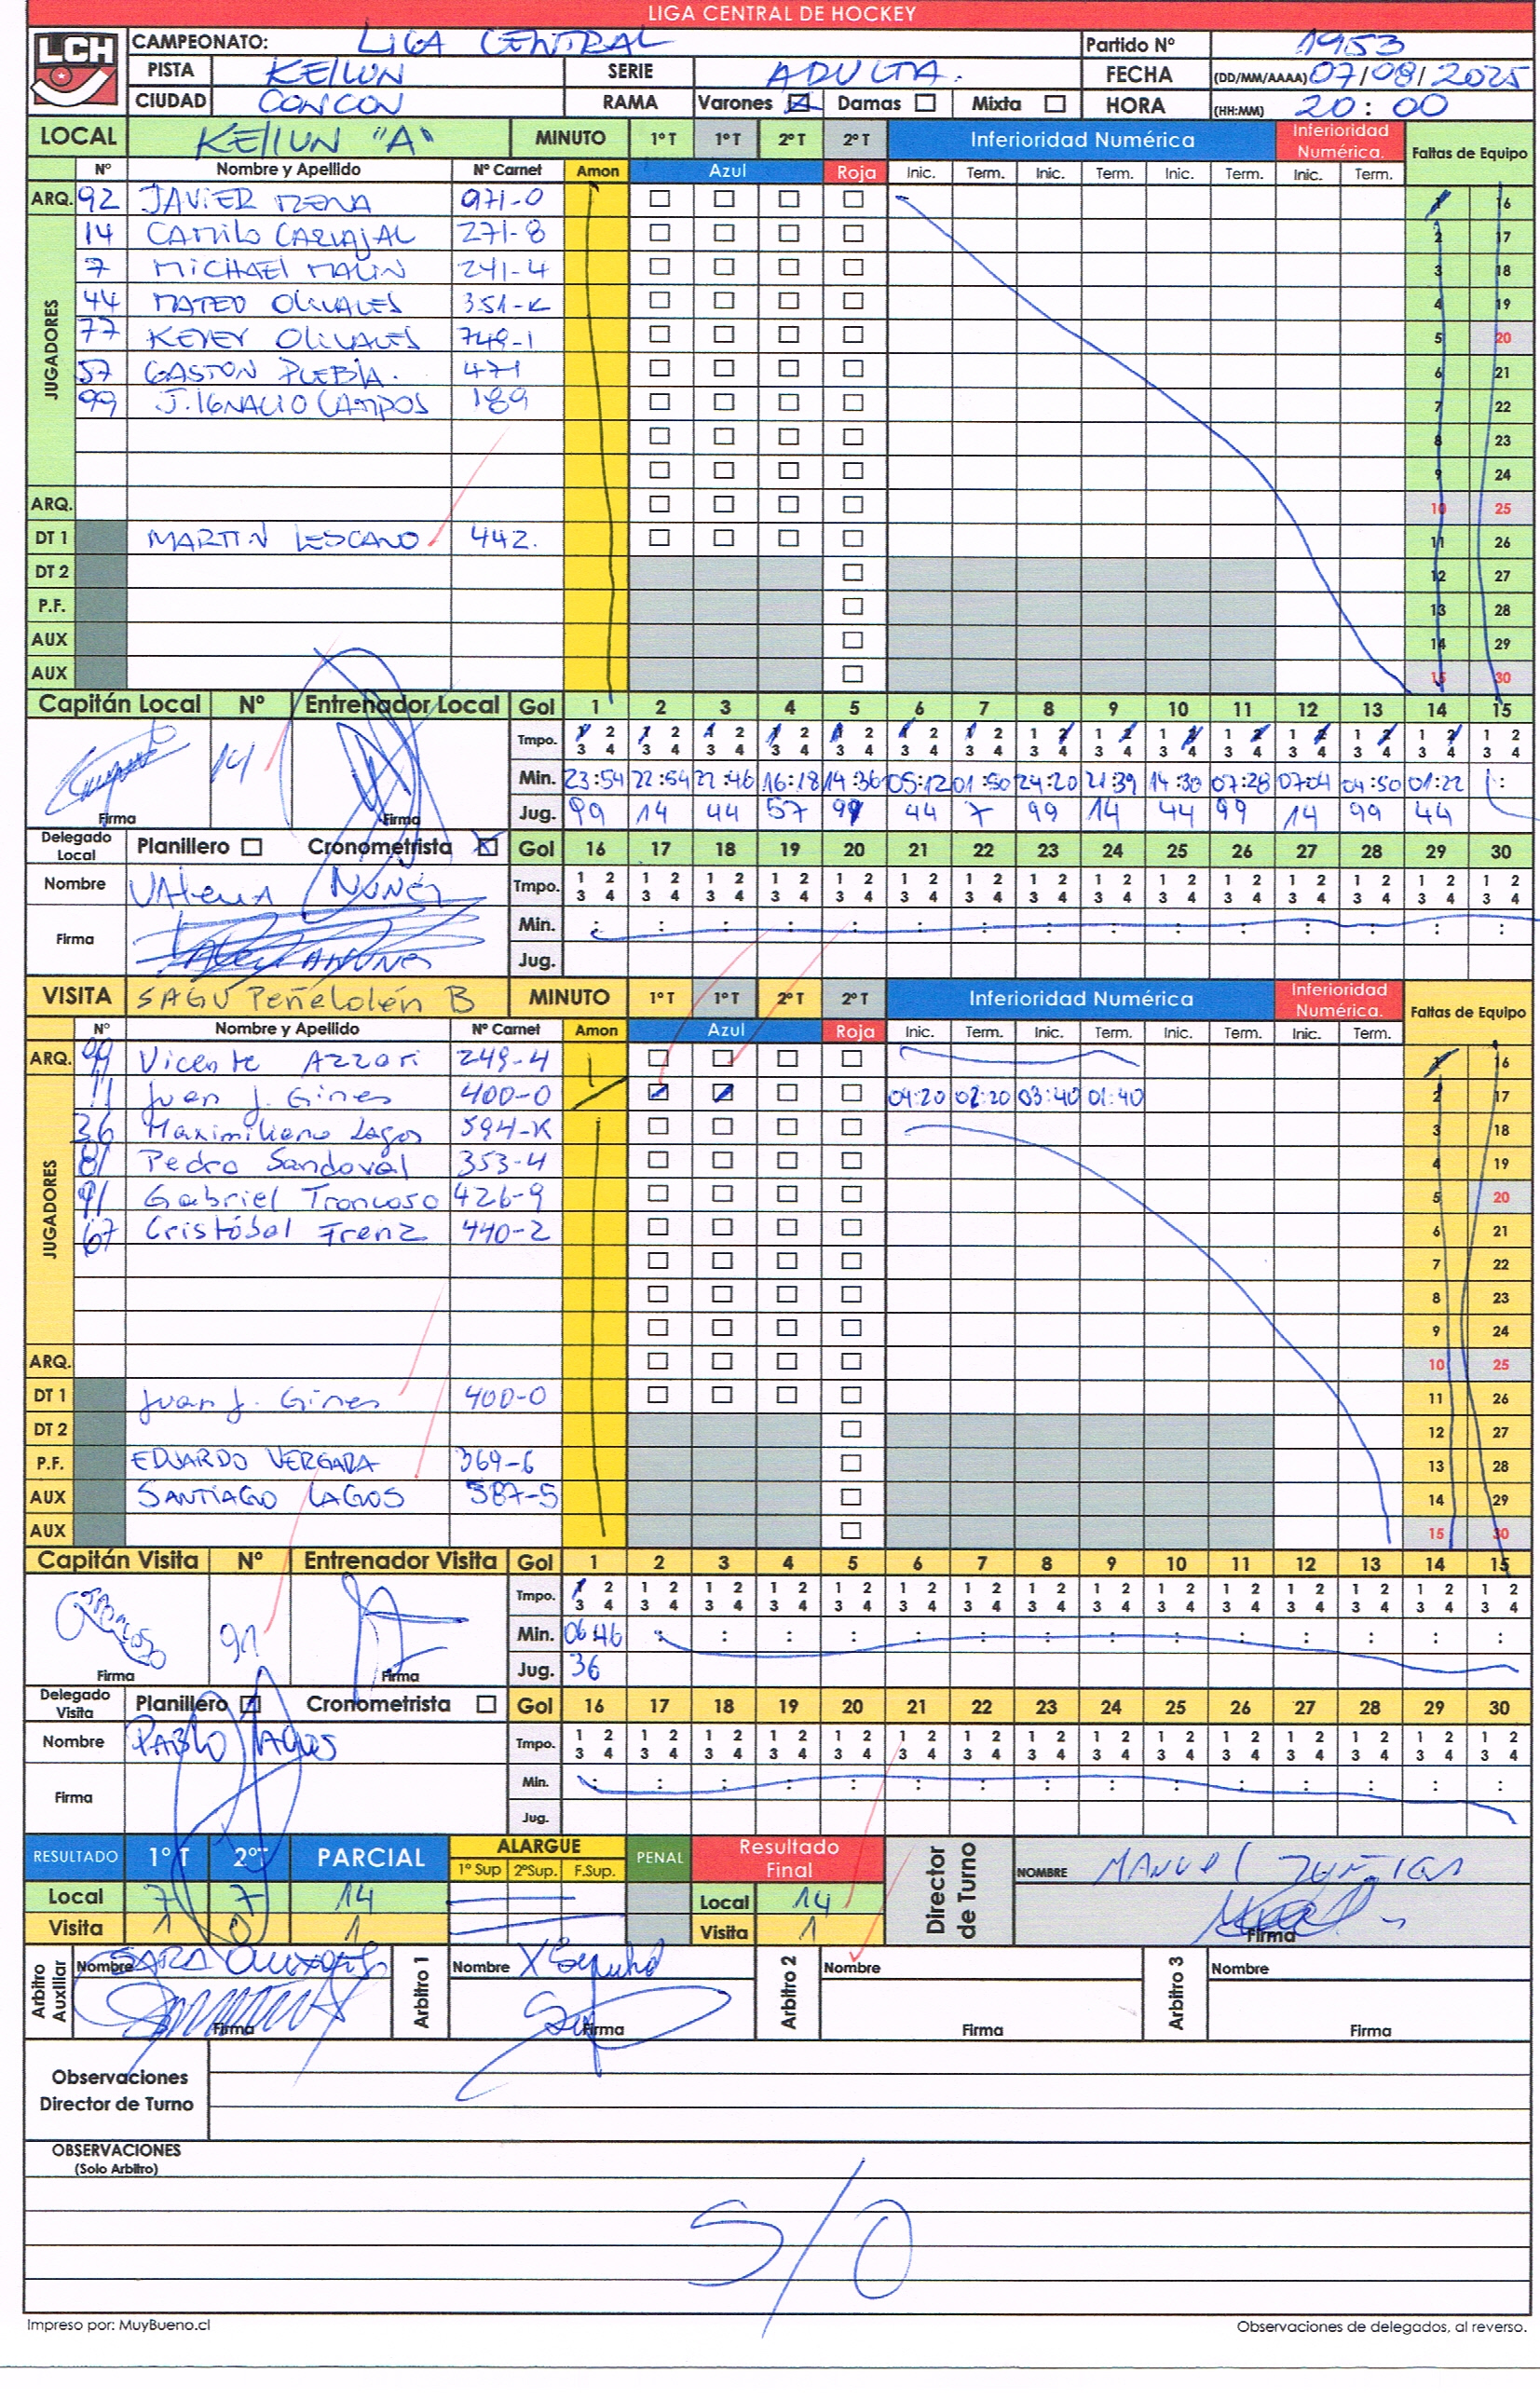 LIGA CENTRAL DE HOCKEY
LCH CAMPEONATO: LIGA CENTRAL Partido Nº 1953
PISTA KEllUN SERIE ADULTA. FECHA (DD/MM/AAAA) 07/08/2025
CIUDAD CONCON RAMA Varones Damas Mixta HORA (HH:MM) 20:00
LOCAL KEllUN "A" MINUTO 1º T 1º T 2º T 2º T Inferioridad Numérica Inferioridad Numérica. Faltas de Equipo
Nº Nombre y Apellido Nº Carnet Amon Azul Roja Inic. Term. Inic. Term. Inic. Term. Inic. Term.
ARQ. 92 JAVIER MENA 971-0 1 16
JUGADORES
14 CAMILO CARVAJAL 271-8 2 17
7 MICHAEL MALIN 241-4 3 18
44 MATEO OLIVARES 351-K 4 19
77 KEVEN OLIVARES 749-1 5 20
57 GASTON PUEBLA. 471 6 21
99 J. IGNACIO CAMPOS 189 7 22
8 23
9 24
ARQ. 10 25
DT 1 MARTIN LESCANO 442. 11 26
DT 2 12 27
P.F. 13 28
AUX 14 29
AUX 15 30
Capitán Local Nº Entrenador Local Gol 1 2 3 4 5 6 7 8 9 10 11 12 13 14 15
14 Tmpo. 1 2 1 2 1 2 1 2 1 2 1 2 1 2 1 2 1 2 1 2 1 2 1 2 1 2 1 2 1 2
3 4 3 4 3 4 3 4 3 4 3 4 3 4 3 4 3 4 3 4 3 4 3 4 3 4 3 4 3 4
Min. 23:54 22:54 22:46 16:18 14:36 05:12 01:50 24:20 21:39 14:30 07:28 07:04 04:50 01:22 :
Firma Firma Jug. 99 14 44 57 99 44 7 99 14 44 99 14 99 44
Delegado Local Planillero Cronometrista Gol 16 17 18 19 20 21 22 23 24 25 26 27 28 29 30
Nombre VAleria NUÑEZ Tmpo. 1 2 1 2 1 2 1 2 1 2 1 2 1 2 1 2 1 2 1 2 1 2 1 2 1 2 1 2 1 2
3 4 3 4 3 4 3 4 3 4 3 4 3 4 3 4 3 4 3 4 3 4 3 4 3 4 3 4 3 4
Firma Min. : : : : : : : : : : : : : : :
Jug.
VISITA SAGU Peñelolén B MINUTO 1º T 1º T 2º T 2º T Inferioridad Numérica Inferioridad Numérica. Faltas de Equipo
Nº Nombre y Apellido Nº Carnet Amon Azul Roja Inic. Term. Inic. Term. Inic. Term. Inic. Term.
ARQ. 99 Vicente Azzari 249-4 1 16
JUGADORES
11 Juan J. Gines 400-0 04:20 02:20 03:40 01:40 2 17
36 Maximiliano Lagos 594-K 3 18
81 Pedro Sandoval 353-4 4 19
91 Gabriel Troncoso 426-9 5 20
67 Cristóbal Frenz 440-2 6 21
7 22
8 23
9 24
ARQ. 10 25
DT 1 Juan J. Gines 400-0 11 26
DT 2 12 27
P.F. EDUARDO VERGARA 369-6 13 28
AUX SANTIAGO LAGOS 587-5 14 29
AUX 15 30
Capitán Visita Nº Entrenador Visita Gol 1 2 3 4 5 6 7 8 9 10 11 12 13 14 15
91 Tmpo. 1 2 1 2 1 2 1 2 1 2 1 2 1 2 1 2 1 2 1 2 1 2 1 2 1 2 1 2 1 2
3 4 3 4 3 4 3 4 3 4 3 4 3 4 3 4 3 4 3 4 3 4 3 4 3 4 3 4 3 4
Min. 06:46 : : : : : : : : : : : : : :
Firma Firma Jug. 36
Delegado Visita Planillero Cronometrista Gol 16 17 18 19 20 21 22 23 24 25 26 27 28 29 30
Nombre PABLO LAGOS Tmpo. 1 2 1 2 1 2 1 2 1 2 1 2 1 2 1 2 1 2 1 2 1 2 1 2 1 2 1 2 1 2
3 4 3 4 3 4 3 4 3 4 3 4 3 4 3 4 3 4 3 4 3 4 3 4 3 4 3 4 3 4
Firma Min. : : : : : : : : : : : : : : :
Jug.
RESULTADO 1º T 2ºT PARCIAL ALARGUE PENAL Resultado Final Director de Turno NOMBRE MANUEL ZUÑIGA
1º Sup 2ºSup. F.Sup.
Local 7 7 14 Local 14
Visita 1 0 1 Visita 1 Firma
Arbitro Auxiliar Nombre SARA Arbitro 1 Nombre Arbitro 2 Nombre Arbitro 3 Nombre
Firma Firma Firma Firma
Observaciones Director de Turno
OBSERVACIONES
(Solo Arbitro)
S/O
Impreso por: MuyBueno.cl Observaciones de delegados, al reverso.